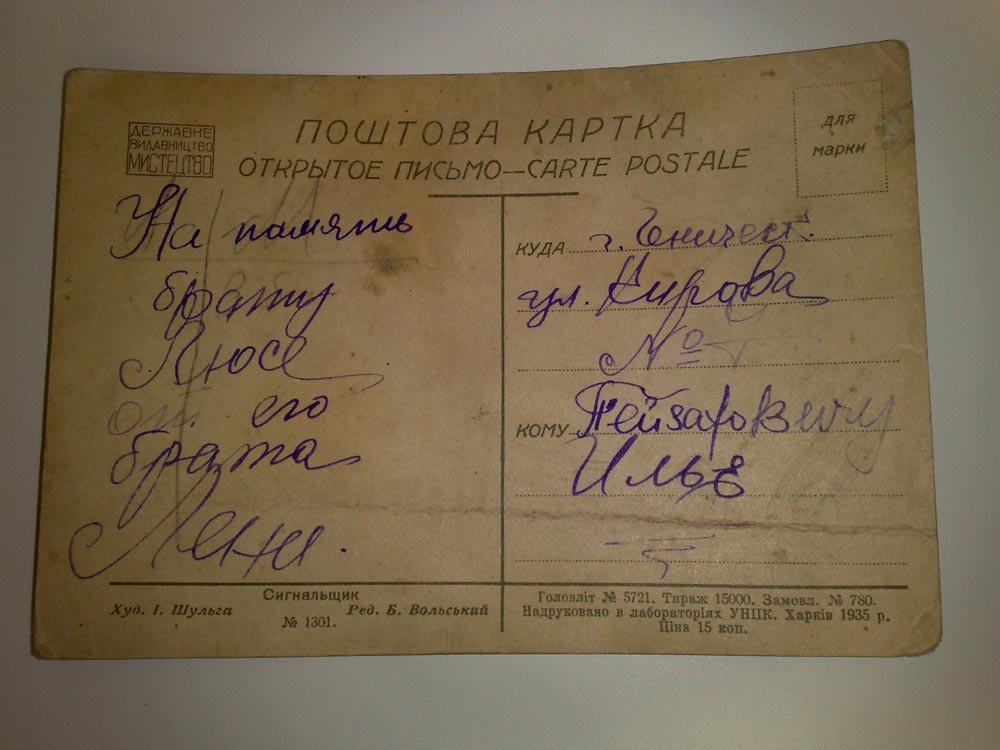 ДЕРЖАВНЕ
ВИДАВНИЦТВО
МИСТЕЦТВО
ПОШТОВА КАРТКА
ОТКРЫТОЕ ПИСЬМО—CARTE POSTALE
ДЛЯ
марки
На память
брату
Люсе
от его
брата
Лени.
КУДА г. Геническ.
ул. Кирова
№
КОМУ
Илье
Сигнальщик
Худ. І. Шульга Ред. Б. Вольський
№ 1301.
Головліт № 5721. Тираж 15000. Замовл. № 780.
Надруковано в лабораторіях УНІК. Харків 1935 р.
Ціна 15 коп.